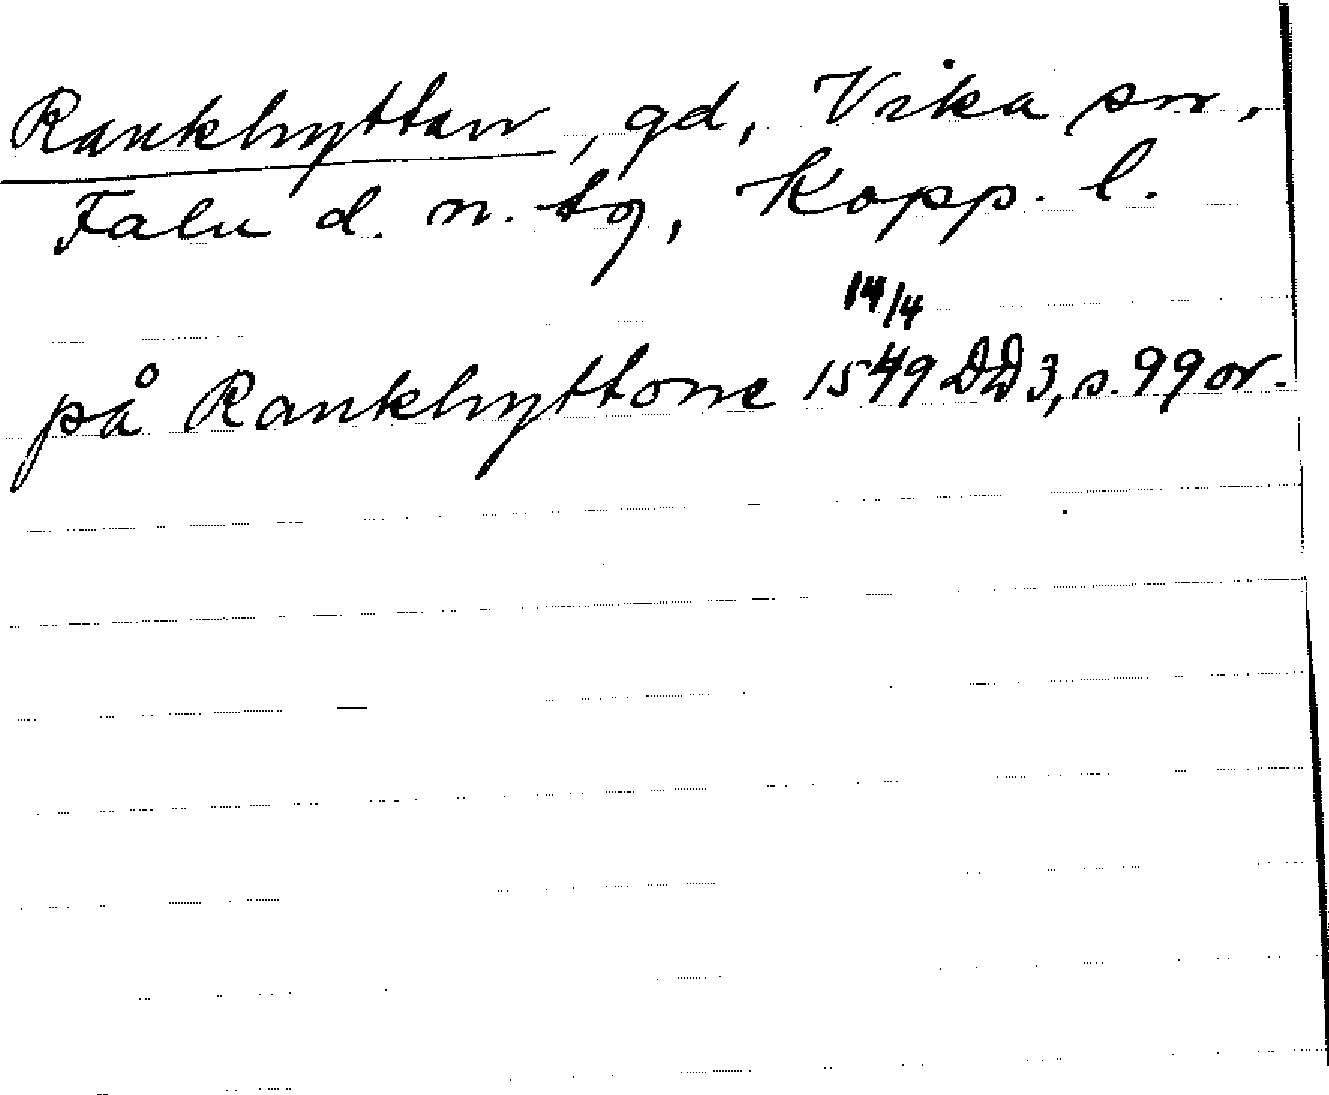 Rankhyttan, gd, Vika sn,
Falu d. n. tg, Kopp. l.
14/4
på Rankhyttone 1549 DD 3, s. 99 or.